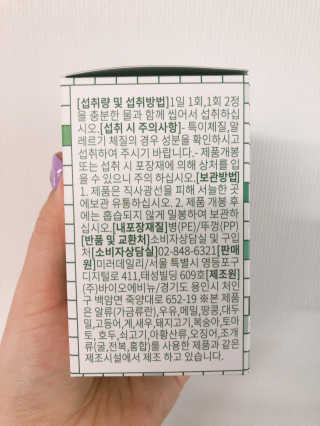 [섭취량 및 섭취방법]1일 1회,1회 2정
을 충분한 물과 함께 씹어서 섭취하십
시오.[섭취 시 주의사항]- 특이체질,알
레르기 체질의 경우 성분을 확인하시고
섭취하여 주시기 바랍니다.- 제품개봉
또는 섭취 시 포장재에 의해 상처를 입
을 수 있으니 주의 하십시오.[보관방법]
1. 제품은 직사광선을 피해 서늘한 곳
에보관 유통하십시오. 2. 제품 개봉 후
에는 흡습되지 않게 밀봉하여 보관하
십시오.[내포장재질]병(PE)/뚜껑(PP)
[반품 및 교환처]소비자상담실 및 구입
처[소비자상담실]02-848-6321[판매
원]미러데일리/서울 특별시 영등포구
디지털로 411,태성빌딩 609호[제조원]
(주)바이오에비뉴/경기도 용인시 처인
구 백암면 죽양대로 652-19 ※본 제품
은 알류(가금류란),우유,메밀,땅콩,대두
밀,고등어,게,새우,돼지고기,복숭아,토마
토, 호두,쇠고기,아황산류,오징어,조개
류(굴,전복,홍합)를 사용한 제품과 같은
제조시설에서 제조 하고 있습니다.